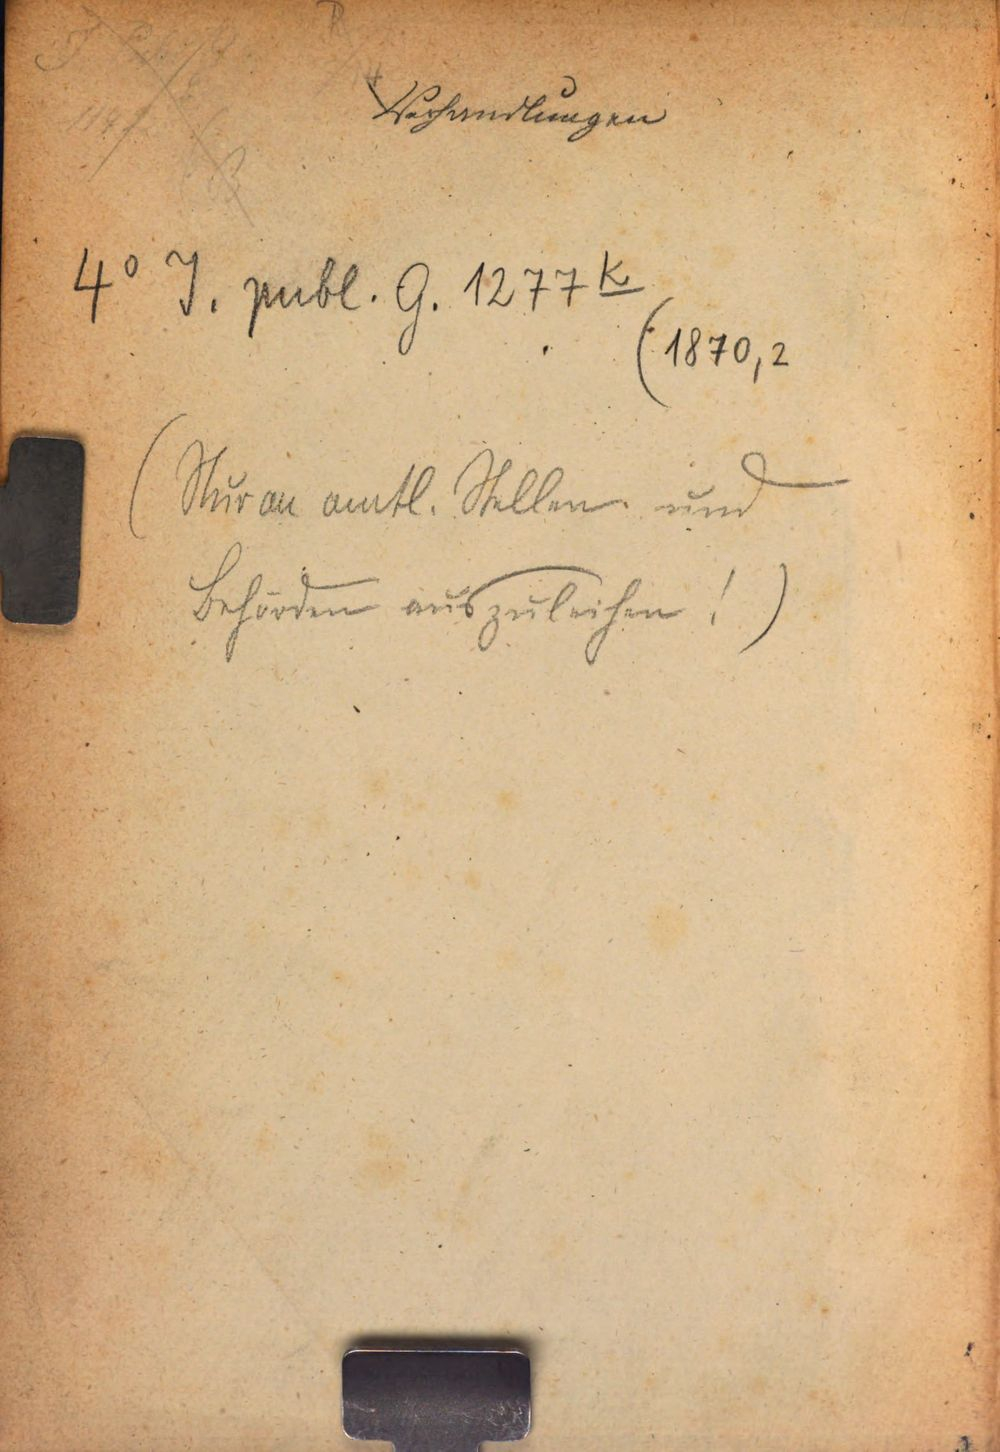 Verhandlungen
4° J. publ. G. 1277 k
(1870,2
(Nur an amtl. Stellen und
Behörden auszuleihen!)